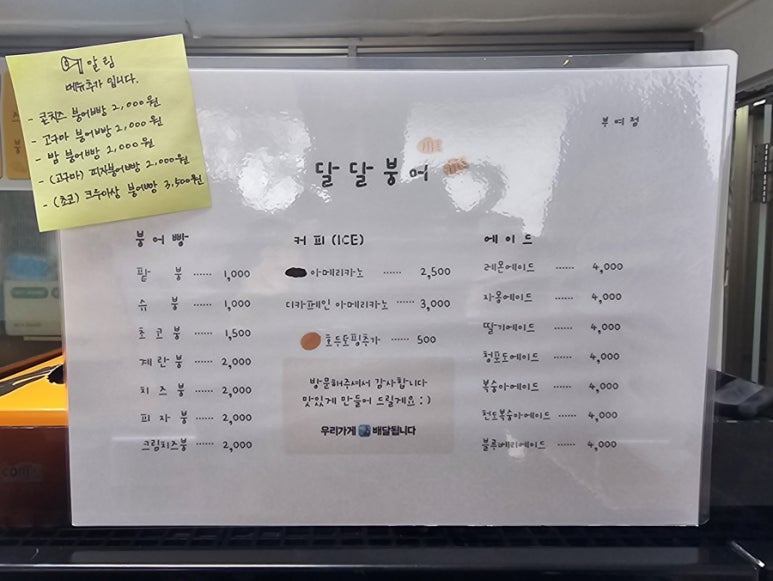 알림
메뉴추가 입니다.
- 콘치즈 붕어빵 2,000원
- 고구마 붕어빵 2,000원
- 밤 붕어빵 2,000원
- (고구마) 피자붕어빵 2,000원
- (초코) 크루아상 붕어빵 3,500원
부여점
달달붕어
붕어빵
팥붕 ······ 1,000
슈붕 ······ 1,000
초코붕 ······ 1,500
계란붕 ······ 2,000
치즈붕 ······ 2,000
피자붕 ······ 2,000
크림치즈붕 ······ 2,000
커피(ICE)
아메리카노 ······ 2,500
디카페인 아메리카노 ······ 3,000
호두토핑추가 ······ 500
방문해주셔서 감사합니다
맛있게 만들어 드릴게요 : )
우리가게 배달됩니다
에이드
레몬에이드 ······ 4,000
자몽에이드 ······ 4,000
딸기에이드 ······ 4,000
청포도에이드 ······ 4,000
복숭아에이드 ······ 4,000
천도복숭아에이드 ······ 4,000
블루베리에이드 ······ 4,000
com